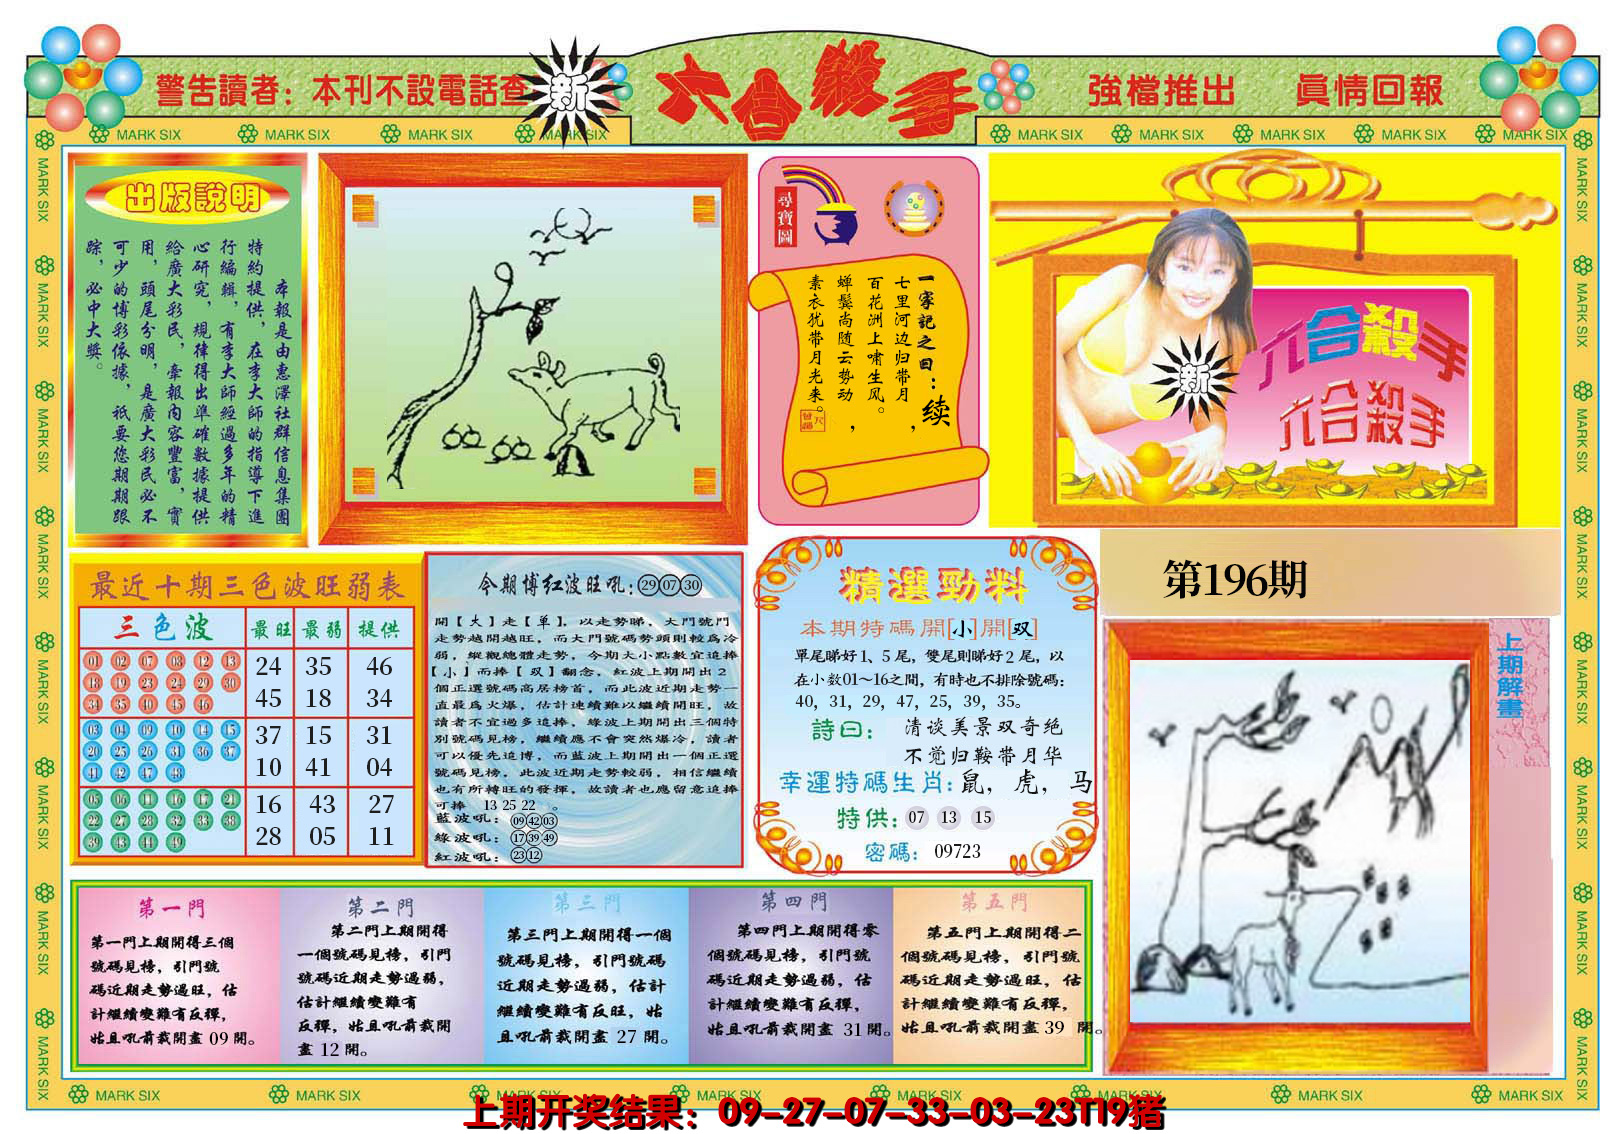 警告讀者：本刊不設電話查
新
六合殺手
強檔推出　真情回報
MARK SIX
出版說明
本報是由惠澤社群信息集團
特約提供，在李大師的指導下進
行編輯，有李大師經過多年的精
心研究，規律得出準確數據提供
給廣大彩民，牽報內容豐富，實
用，頭尾分明，是廣大彩民必不
可少的博彩依據，祇要您期期跟
踪，必中大獎。
尋寶圖
一字記之曰：续
七里河边归带月，
百花洲上啸生风。
蝉鬓尚随云势动，
素衣犹带月光来。
新
六合殺手
六合殺手
第196期
上期解畫
最近十期三色波旺弱表
三色波 最旺 最弱 提供
01 02 07 08 12 13
18 19 23 24 29 30
34 35 40 45 46
24 35 46
45 18 34
03 04 09 10 14 15
20 25 26 31 36 37
41 42 47 48
37 15 31
10 41 04
05 06 11 16 17 21
22 27 28 32 33 38
39 43 44 49
16 43 27
28 05 11
今期博红波旺吼：29 07 30
開【大】走【单】，以走勢睇，大門號門
走勢越開越旺，而大門號碼勢頭則較爲冷
弱，縱觀總體走勢，今期大小點數宜追捧
【小】而捧【双】翻念，紅波上期開出2
個正選號碼高居榜首，而此波近期走勢一
直最爲火爆，估計連續難以繼續開旺，故
讀者不宜過多追捧，綠波上期開出三個特
別號碼見榜，繼續應不會突然爆冷，讀者
可以優先追博，而藍波上期開出一個正選
號碼見榜，此波近期走勢較弱，相信繼續
也有所轉旺的發揮，故讀者也應留意追捧
可捧 13 25 22 。
藍波吼：09 42 03
綠波吼：17 39 49
紅波吼：23 12
精選勁料
本期特碼開[小]開[双]
單尾睇好1、5尾，雙尾則睇好2尾，以
在小数01～16之間，有時也不排除號碼：
40，31，29，47，25，39，35。
詩曰：清谈美景双奇绝
不觉归鞍带月华
幸運特碼生肖：鼠，虎，马
特供：07 13 15
密碼：09723
第一門
第一門上期開得三個
號碼見榜，引門號
碼近期走勢過旺，估
計繼續變難有反彈，
姑且吼前裁開盡 09 開。
第二門
第二門上期開得
一個號碼見榜，引門
號碼近期走勢過弱，
估計繼續變難有
反彈，姑且吼前裁開
盡 12 開。
第三門
第三門上期開得一個
號碼見榜，引門號碼
近期走勢過弱，估計
繼續變難有反旺，姑
且吼前裁開盡 27 開。
第四門
第四門上期開得零
個號碼見榜，引門號
碼近期走勢過弱，估
計繼續變難有反彈，
姑且吼前裁開盡 31 開。
第五門
第五門上期開得二
個號碼見榜，引門號
碼近期走勢過旺，估
計繼續變難有反彈，
姑且吼前裁開盡 39 開。
上期开奖结果：09-27-07-33-03-23T19猪